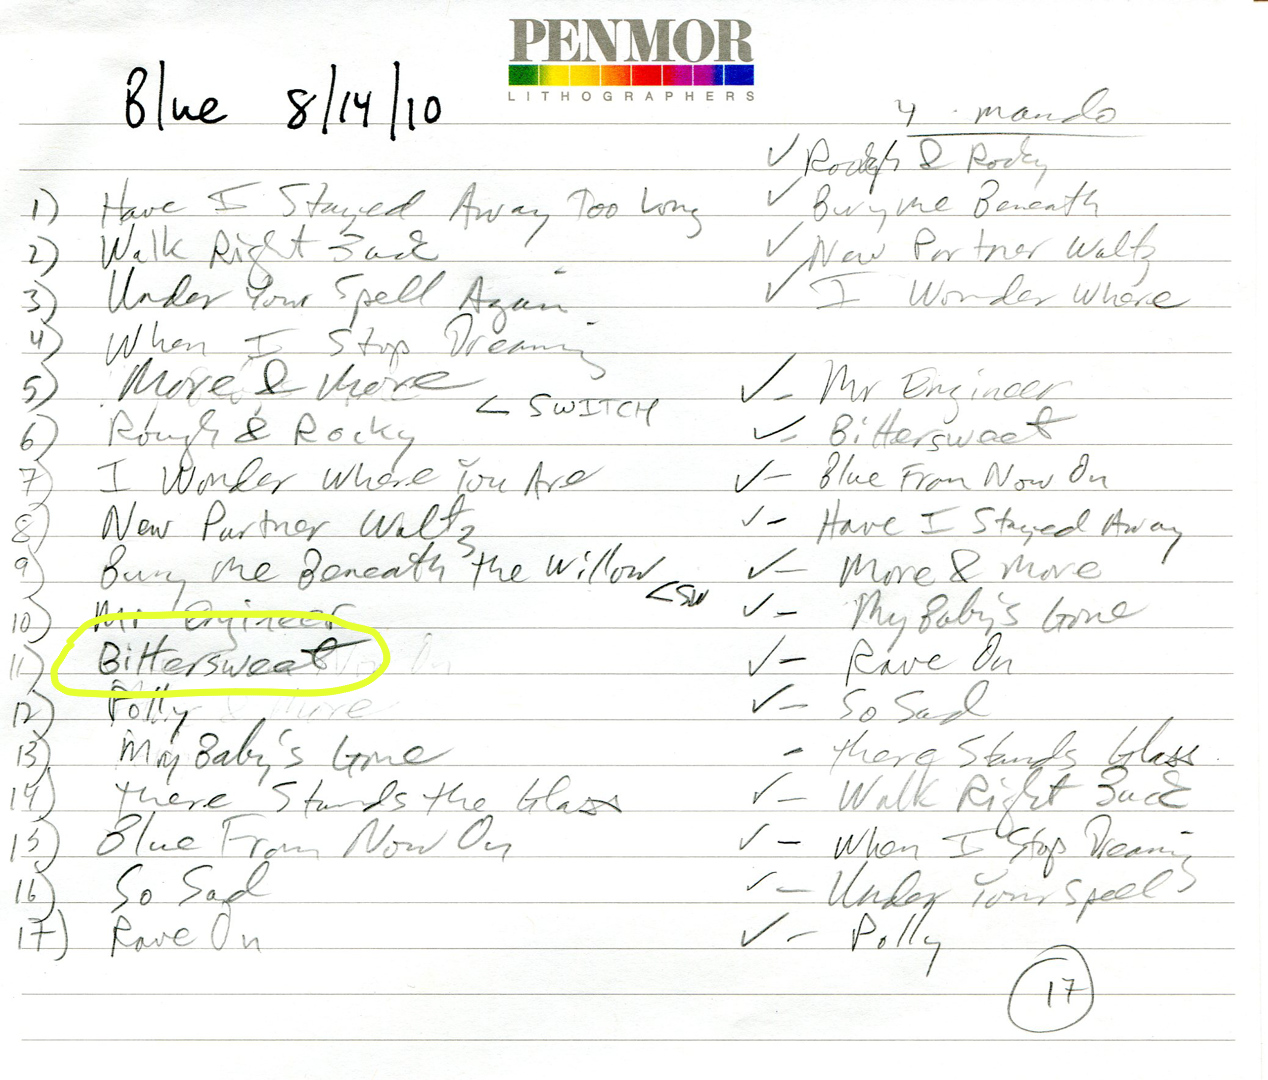 PENMOR
LITHOGRAPHERS
Blue 8/14/10
1) Have I Stayed Away Too Long
2) Walk Right Back
3) Under Your Spell Again
4) When I Stop Dreaming
5) More & More
< SWITCH
6) Rough & Rocky
7) I Wonder Where You Are
8) New Partner Waltz
9) Bury Me Beneath the Willow
< SW
10) Mr Engineer
11) Bittersweet
12) Polly
13) My Baby's Gone
14) There Stands the Glass
15) Blue From Now On
16) So Sad
17) Rave On
4 - mando
✓ Rough & Rocky
✓ Bury Me Beneath
✓ New Partner Waltz
✓ I Wonder Where
✓ - Mr Engineer
✓ - Bittersweet
✓ - Blue From Now On
✓ - Have I Stayed Away
✓ - More & More
✓ - My Baby's Gone
✓ - Rave On
✓ - So Sad
- There Stands Glass
✓ - Walk Right Back
✓ - When I Stop Dreaming
✓ - Under Your Spell
✓ - Polly
17